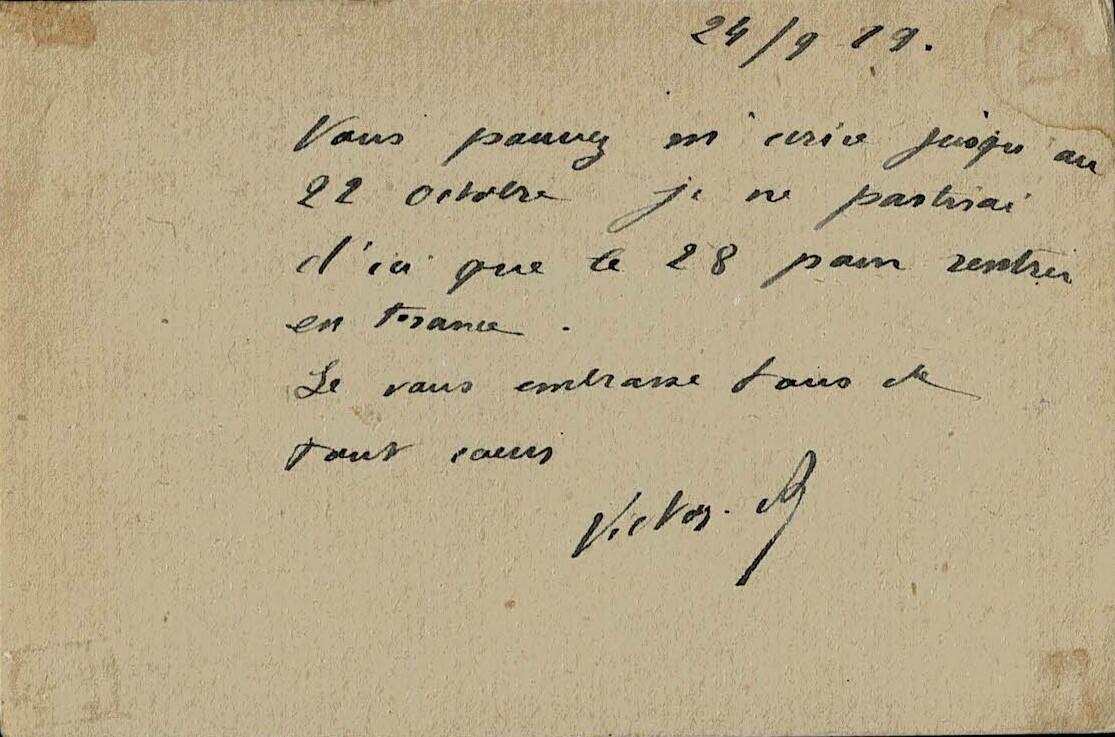 24/9 19.
Vous pouvez m'ecrire jusqu'au
22 octobre je ne partirai
d'ici que le 28 pour rentrer
en France.
Je vous embrasse tous de
tout coeur
Victor.